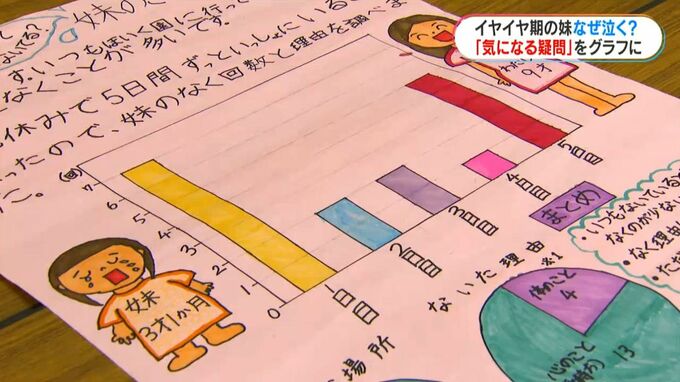 イヤイヤ期の妹なぜ泣く?
「気になる疑問」をグラフに
妹のな
いつもほいく園に行っ
なくことが多いです。
休みで5日間ずっといっしょにいる
ったので、妹のなく回数と理由を調べま
た。
9才
(回)
7
6
5
4
3
2
1
0
1日目
2日目
3日目
4日目
5日目
妹
3才1か月
まとめ
いつもないている
なくのが少な
なく理由
ないた理由
※1
体のこと
4
心のこと
13
場所